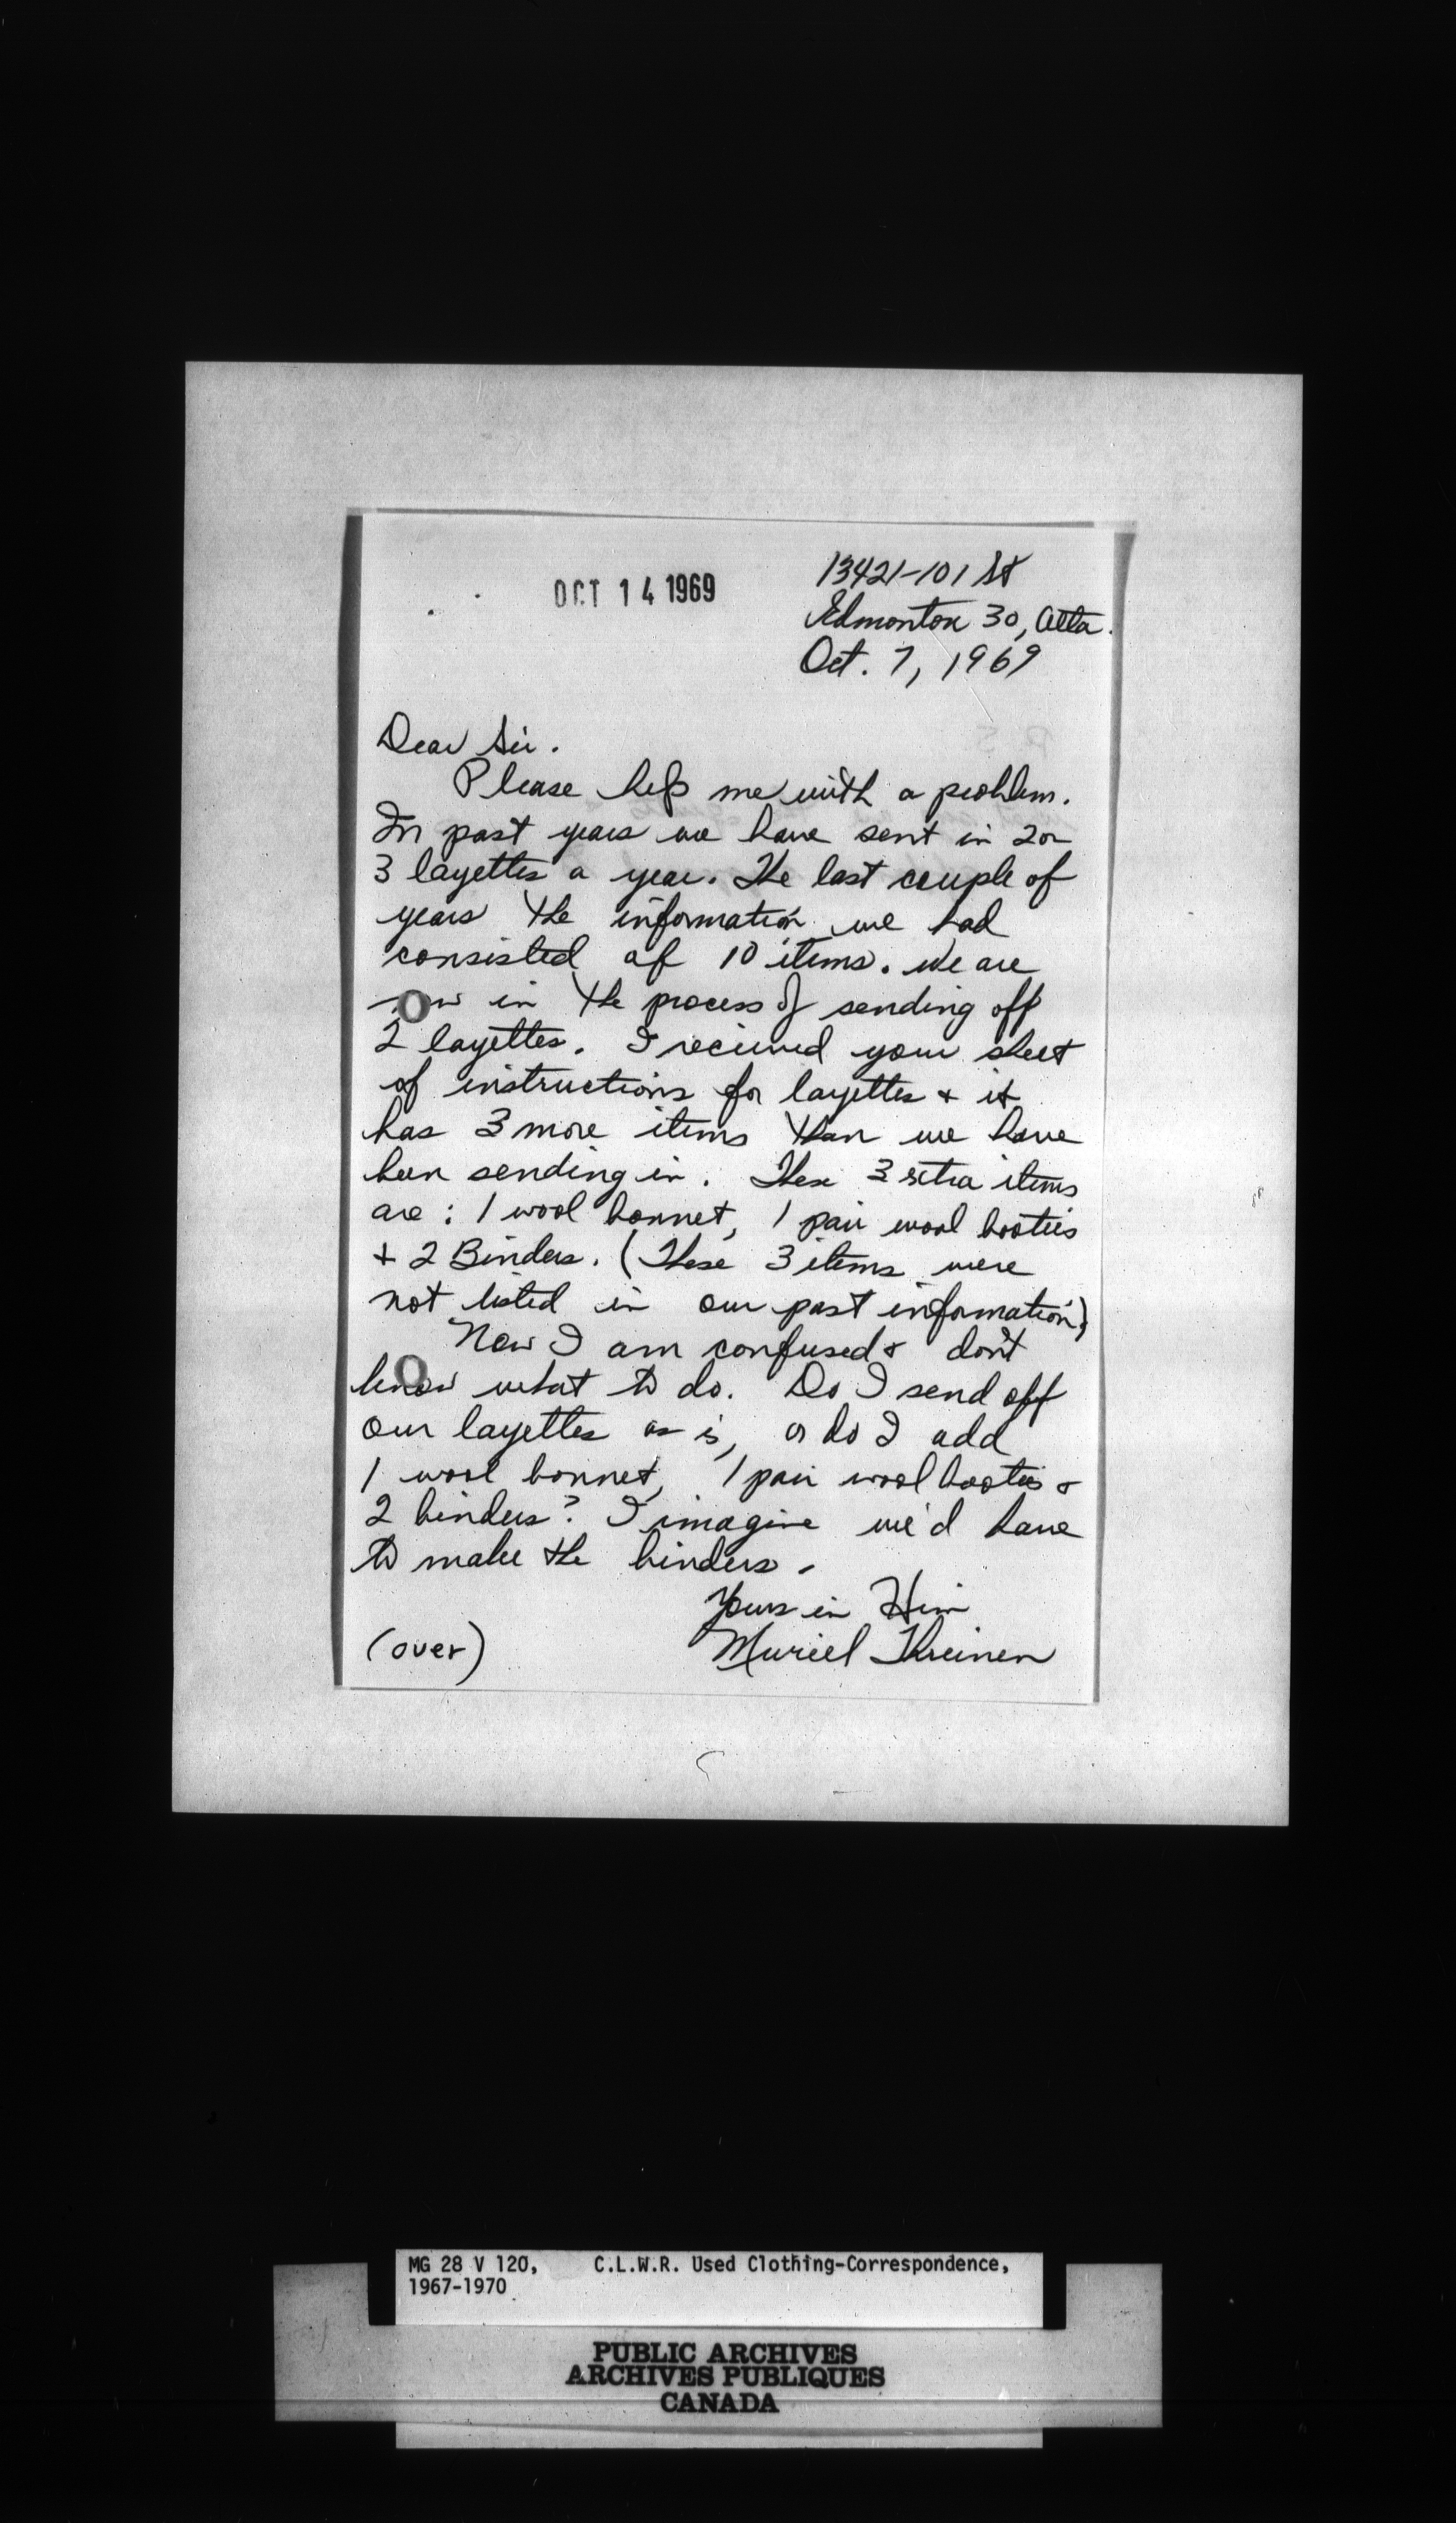 OCT 14 1969
13421-101 St
Edmonton 30, Alta.
Oct. 7, 1969
Dear Sir.
Please help me with a problem.
In past years we have sent in 2 or
3 layettes a year. The last couple of
years the information we had
consisted of 10 items. We are
now in the process of sending off
2 layettes. I received your sheet
of instructions for layettes + it
has 3 more items than we have
been sending in. These 3 extra items
are: 1 wool bonnet, 1 pair wool booties
+ 2 Binders. (These 3 items were
not listed in our past information)
Now I am confused + don't
know what to do. Do I send off
our layettes as is, or do I add
1 wool bonnet, 1 pair wool booties +
2 binders? I imagine we'd have
to make the binders.
Yours in Him
(over) Muriel
MG 28 V 120, C.L.W.R. Used Clothing-Correspondence,
1967-1970
PUBLIC ARCHIVES
ARCHIVES PUBLIQUES
CANADA